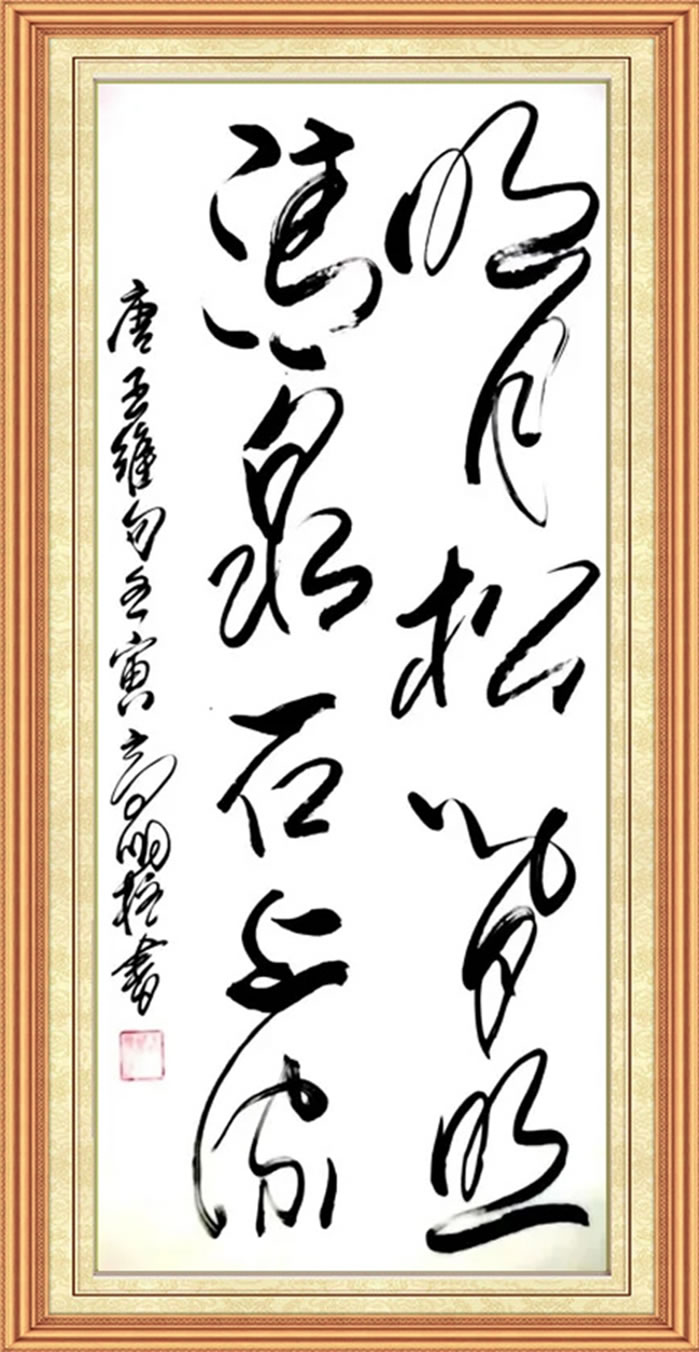 明月松间照
清泉石上流
唐王维句壬寅高明柱书